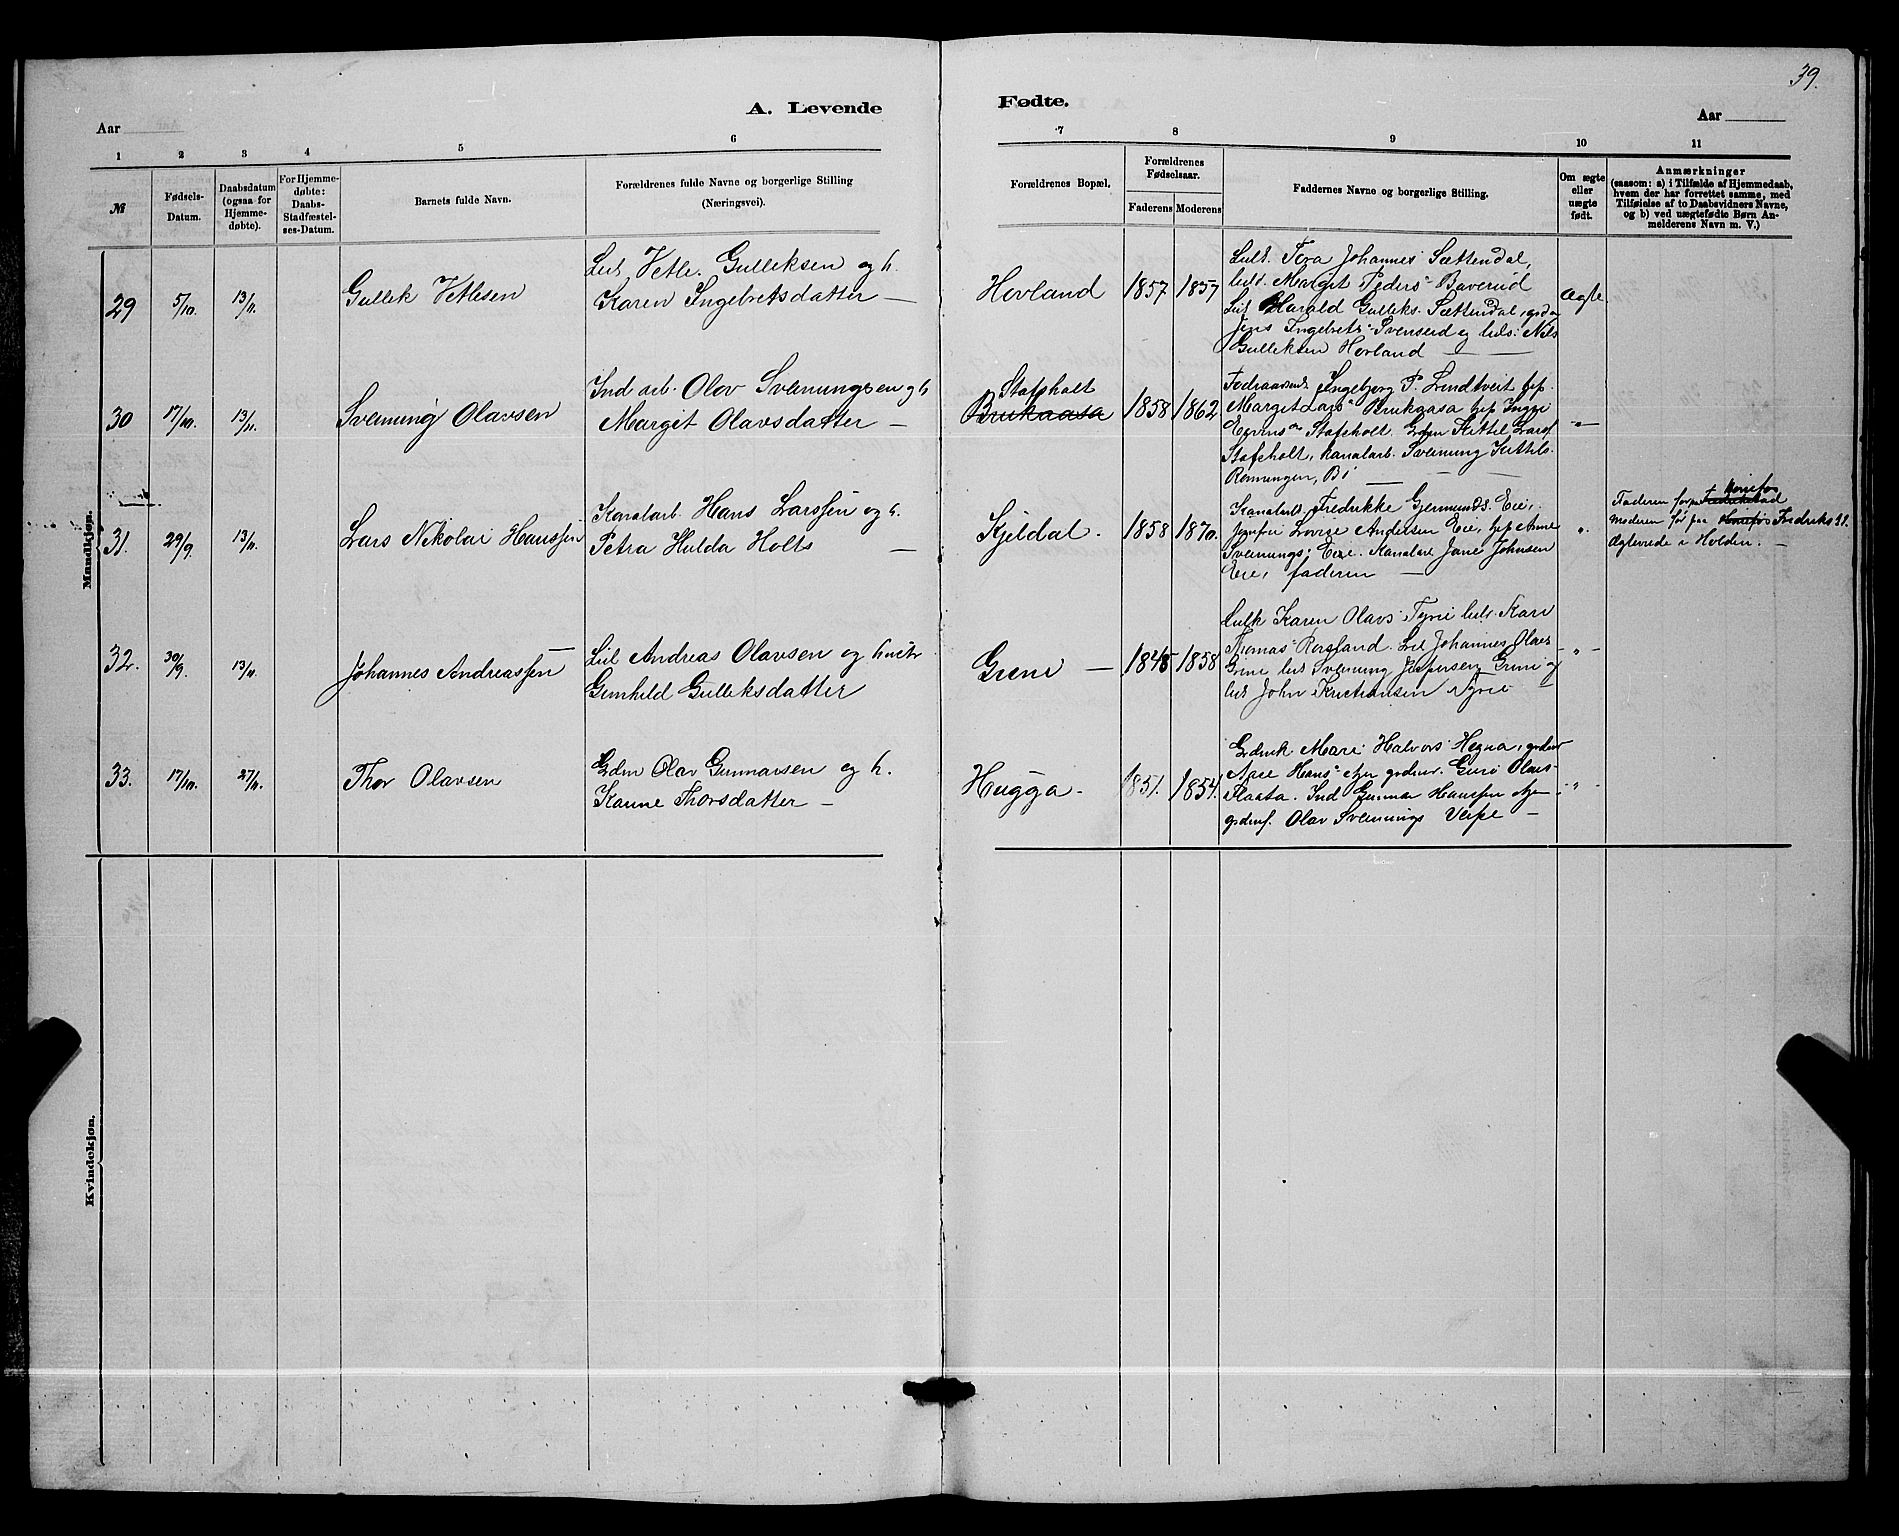 39.
A. Levende Fødte.
Aar Aar
1 2 3 4 5 6 7 8 9 10 11
№
Fødsels-
Datum.
Daabsdatum
(ogsaa for
Hjemme-
døbte).
For Hjemme-
døbte:
Daabs-
Stadfæstel-
ses-Datum.
Barnets fulde Navn.
Forældrenes fulde Navne og borgerlige Stilling
(Næringsvei).
Forældrenes Bopæl.
Forældrenes
Fødselsaar.
Faderens Moderens
Faddernes Navne og borgerlige Stilling.
Om ægte
eller
uægte
født.
Anmærkninger
(saasom: a) i Tilfælde af Hjemmedaab,
hvem der har forrettet samme, med
Tilføielse af to Daabsvidners Navne,
og b) ved uægtefødte Børn An-
melderens Navn m. V.)
Mandkjøn.
29 5/10. 13/11. Gullek Vetlesen
Vetle Gulleksen og h.
Karen Ingebretsdatter —
Hovland 1857 1857
Tora Johannes Sættendal,
Margit Peders Baverud
Harald Gulleks. Sættendal,
Jens Ingebrets Svenseid og Nils
Gulleksen Hovland —
Ægte
30 17/10. 13/11. Svenung Olavsen
Ind arb. Olav Svenungsen og h
Margit Olavsdatter —
Stafsholt
Brukaasa
1858 1862
Ingebjerg P. Lindtveit
Margit Lars Brukaasa
Stafsholt. Gdm Kittil Lars
Stafsholt, kanalarb. Svenung Kittils.
Rønningen, Bø —
"
31. 29/9. 13/11. Lars Nikolai Hanssen
Kanalarb. Hans Larssen og h.
Petra Hulda Holts —
Kjeldal. 1858 1870.
Fredrikke Gjermunds. Eie,
Lovise Andersen Eie, Anne
Svenungs. Eie. Jane Johnsen
Eie, faderen —
"
Hønefos
Faderen før paa Fredrikstad
Moderen før paa Hønefos Fredrikst.
Ægteviede i Holden. —
32. 30/9. 13/11. Johannes Andreassen
Andreas Olavsen og hustr
Gunhild Gulleksdatter
Grini — 1845 1858
Karen Olavs Tyrie Kari
Thomas Rorsland. Johannes Olavs
Grini Svenung Jespersen Grini og
John Kristiansen Tyrie —
"
33. 17/10. 27/11. Thor Olavsen
Gdm Olav Gunnarsen og h.
Kanne Thorsdatter —
Hugga. 1851. 1854.
Mari Halvors Hegna,
Hans Guro Olavs
Flaata. Ind Gunnar Hanssen
Olav Svenungs Verpe —
"
Kvindekjøn.